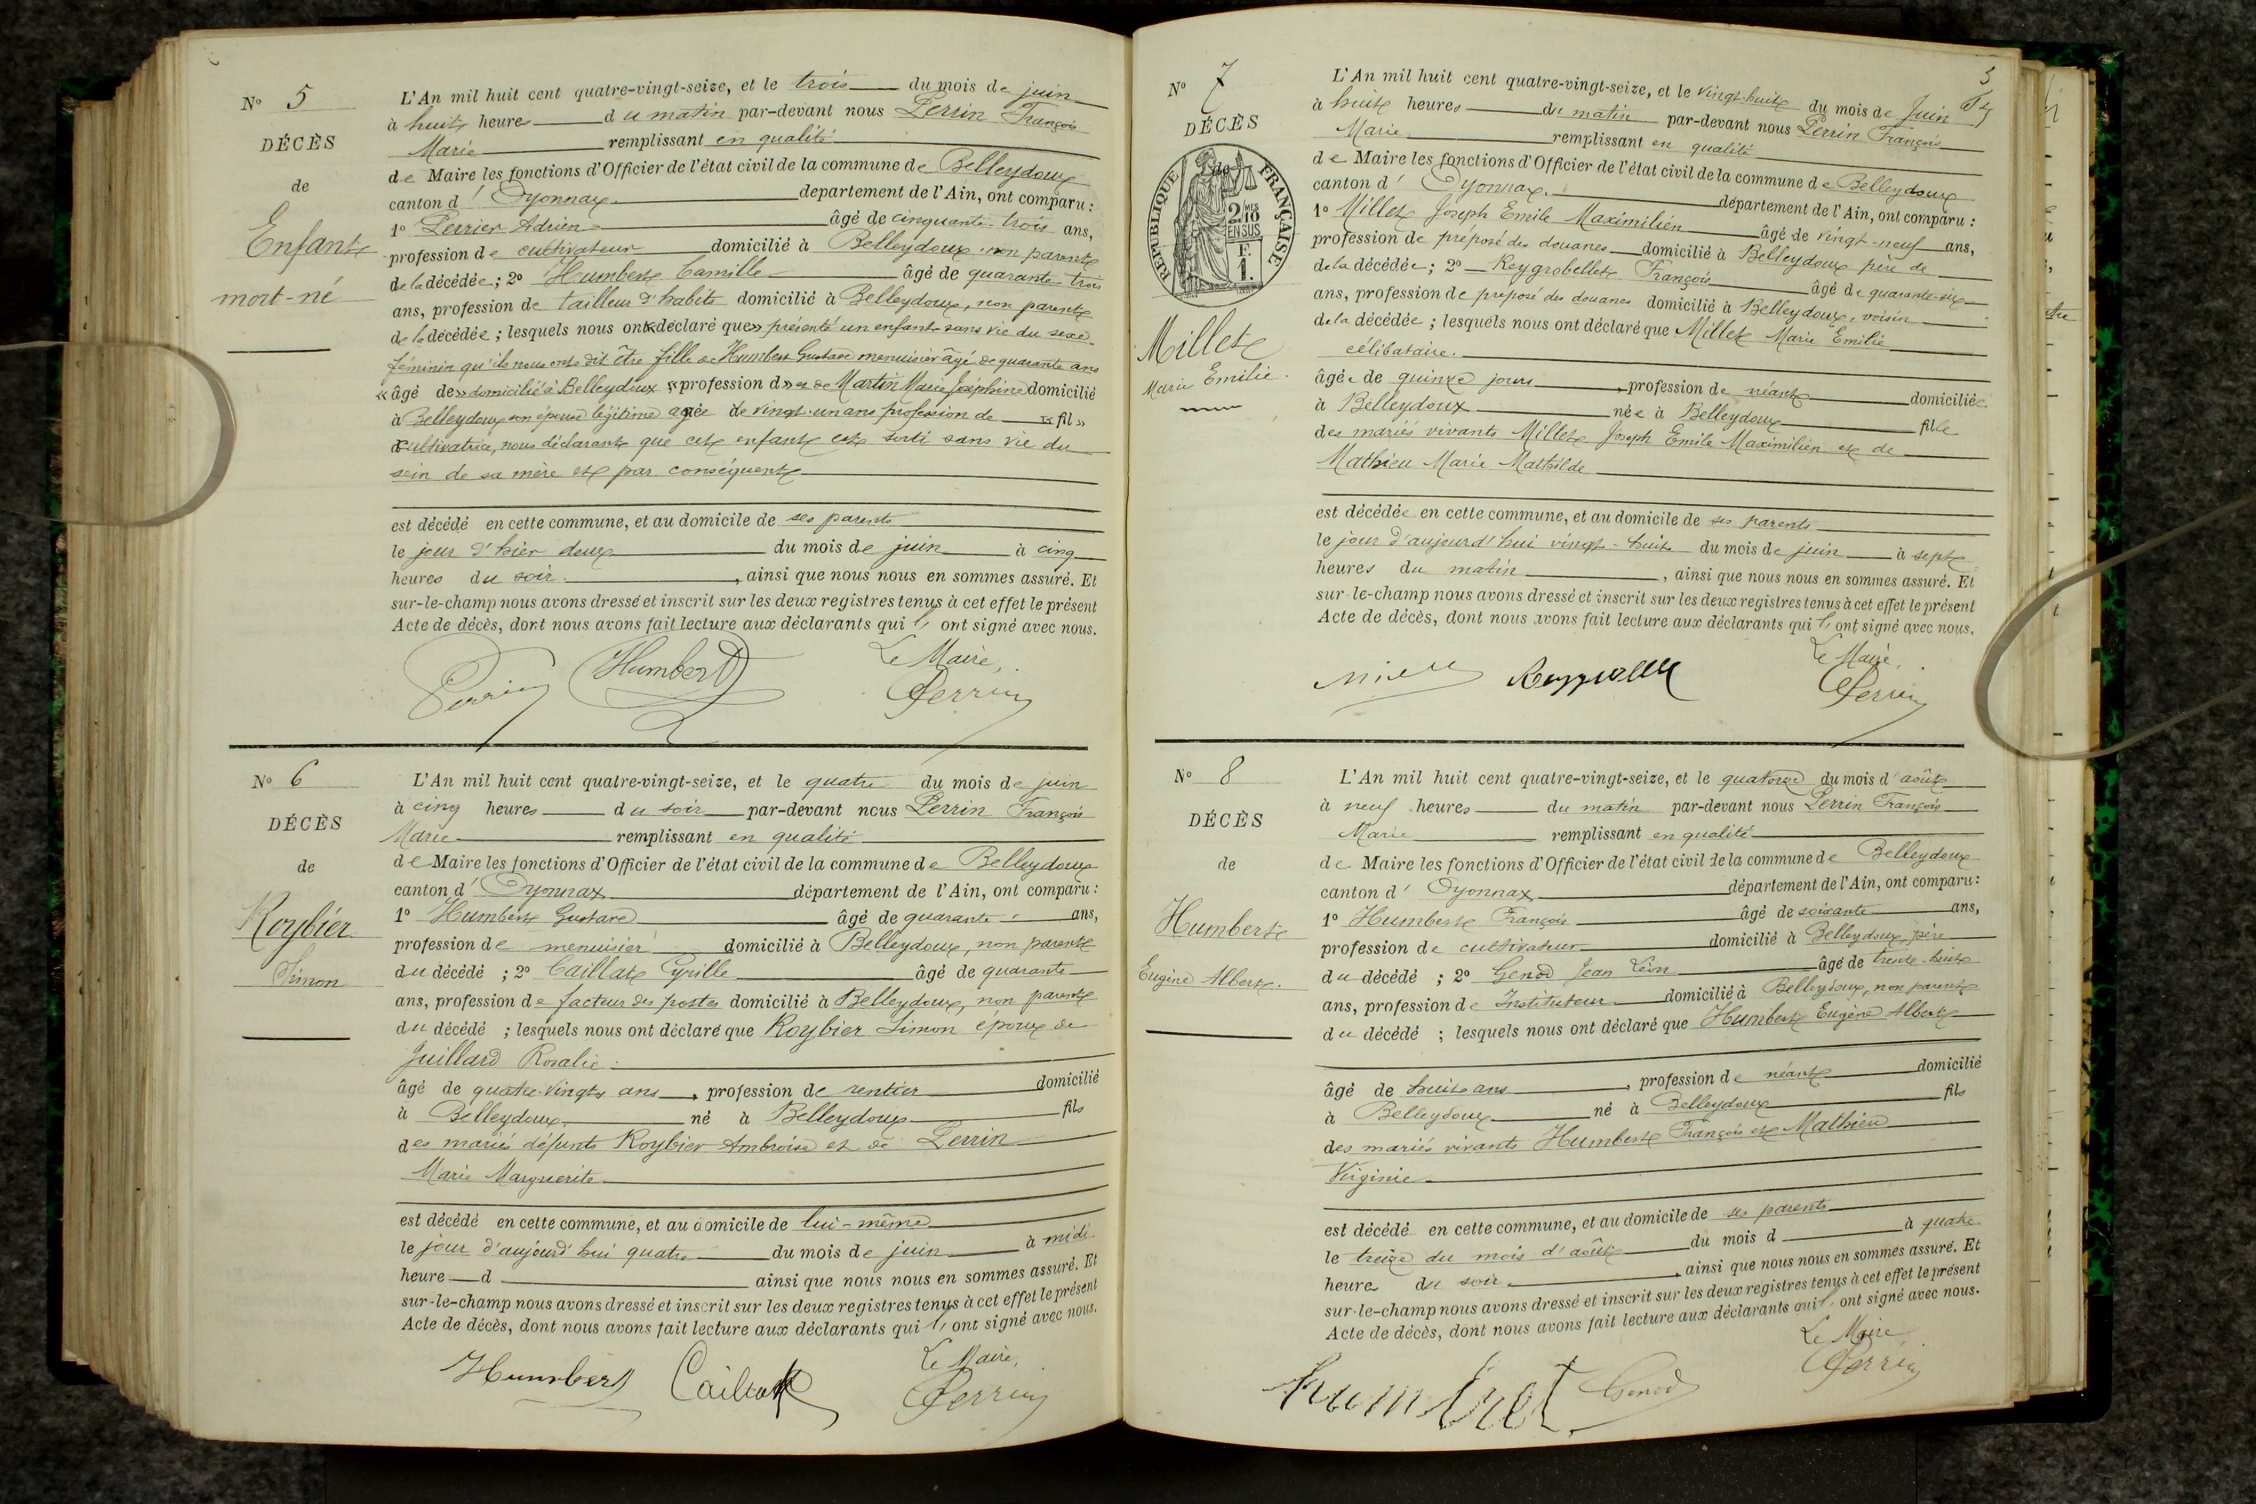 N° 5
DÉCÈS
de
Enfant
mort-né
L'An mil huit cent quatre-vingt-seize, et le trois du mois de juin
à huit heures du matin par-devant nous Perrin François
Marie remplissant en qualité
de Maire les fonctions d'Officier de l'état civil de la commune de Belleydoux
canton d'Oyonnax département de l'Ain, ont comparu :
1° Perrier Adrien âgé de cinquante-trois ans,
profession de cultivateur domicilié à Belleydoux non parent
de la décédée ; 2° Humbert Camille âgé de quarante-trois
ans, profession de tailleur d'habits domicilié à Belleydoux, non parent
de la décédée ; lesquels nous ont «déclaré que» présenté un enfant sans vie du sexe
féminin qu'ils nous ont dit être fille de Humbert Gustave menuisier âgé de quarante ans
«âgé de» domicilié à Belleydoux «profession d» et de Martin Marie Joséphine domicilié
à Belleydoux son épouse légitime agée de vingt-un ans profession de «fil»
cultivatrice, nous déclarant que cet enfant est sorti sans vie du
sein de sa mère et par conséquent
est décédé en cette commune, et au domicile de ses parents
le jour d'hier deux du mois de juin à cinq
heures du soir, ainsi que nous nous en sommes assuré. Et
sur-le-champ nous avons dressé et inscrit sur les deux registres tenus à cet effet le présent
Acte de décès, dont nous avons fait lecture aux déclarants qui l' ont signé avec nous.
Le Maire,
Humbert Perrin
N° 6
DÉCÈS
de
Roybier
Simon
L'An mil huit cent quatre-vingt-seize, et le quatre du mois de juin
à cinq heures du soir par-devant nous Perrin François
Marie remplissant en qualité
de Maire les fonctions d'Officier de l'état civil de la commune de Belleydoux
canton d'Oyonnax département de l'Ain, ont comparu :
1° Humbert Gustave âgé de quarante ans,
profession de menuisier domicilié à Belleydoux, non parent
du décédé ; 2° Caillat Cyrille âgé de quarante
ans, profession de facteur des postes domicilié à Belleydoux, non parent
du décédé ; lesquels nous ont déclaré que Roybier Simon époux de
Juillard Rosalie
âgé de quatre-vingts ans, profession de rentier domicilié
à Belleydoux né à Belleydoux fils
des mariés défunts Roybier Ambroise et de Perrin
Marie Marguerite
est décédé en cette commune, et au domicile de lui-même
le jour d'aujourd'hui quatre du mois de juin à midi
heure d ainsi que nous nous en sommes assuré. Et
sur-le-champ nous avons dressé et inscrit sur les deux registres tenus à cet effet le présent
Acte de décès, dont nous avons fait lecture aux déclarants qui l' ont signé avec nous.
Le Maire,
Humbert Caillat Perrin
5
N° 7
DÉCÈS
de
REPUBLIQUE FRANÇAISE
2 MES
10
EN SUS
F.
1.
Millet
Marie Emilie
L'An mil huit cent quatre-vingt-seize, et le vingt-huit du mois de Juin
à huit heures du matin par-devant nous Perrin François
Marie remplissant en qualité
de Maire les fonctions d'Officier de l'état civil de la commune de Belleydoux
canton d'Oyonnax. département de l'Ain, ont comparu :
1° Millet Joseph Emile Maximilien âgé de vingt-neuf ans,
profession de préposé des douanes domicilié à Belleydoux père de
de la décédée ; 2° Reygrobellet François âgé de quarante-six
ans, profession de préposé des douanes domicilié à Belleydoux, voisin
de la décédée ; lesquels nous ont déclaré que Millet Marie Emilie
célibataire.
âgée de quinze jours, profession de néant domiciliée
à Belleydoux née à Belleydoux fille
des mariés vivants Millet Joseph Emile Maximilien et de
Mathieu Marie Mathilde
est décédée en cette commune, et au domicile de ses parents
le jour d'aujourd'hui vingt-huit du mois de juin à sept
heures du matin, ainsi que nous nous en sommes assuré. Et
sur-le-champ nous avons dressé et inscrit sur les deux registres tenus à cet effet le présent
Acte de décès, dont nous avons fait lecture aux déclarants qui l' ont signé avec nous.
Le Maire,
Perrin
N° 8
DÉCÈS
de
Humbert
Eugène Albert.
L'An mil huit cent quatre-vingt-seize, et le quatorze du mois d'août
à neuf heures du matin par-devant nous Perrin François
Marie remplissant en qualité
de Maire les fonctions d'Officier de l'état civil de la commune de Belleydoux
canton d'Oyonnax département de l'Ain, ont comparu :
1° Humbert François âgé de soixante ans,
profession de cultivateur domicilié à Belleydoux, père
du décédé ; 2° Genod Jean Léon âgé de trente-huit
ans, profession de Instituteur domicilié à Belleydoux, non parent
du décédé ; lesquels nous ont déclaré que Humbert Eugène Albert
âgé de huit ans, profession de néant domicilié
à Belleydoux né à Belleydoux fils
des mariés vivants Humbert François et Mathieu
Virginie
est décédé en cette commune, et au domicile de ses parents
le treize du mois d'août du mois d à quatre
heures du soir, ainsi que nous nous en sommes assuré. Et
sur-le-champ nous avons dressé et inscrit sur les deux registres tenus à cet effet le présent
Acte de décès, dont nous avons fait lecture aux déclarants qui l' ont signé avec nous.
Le Maire
Humbert Genod Perrin